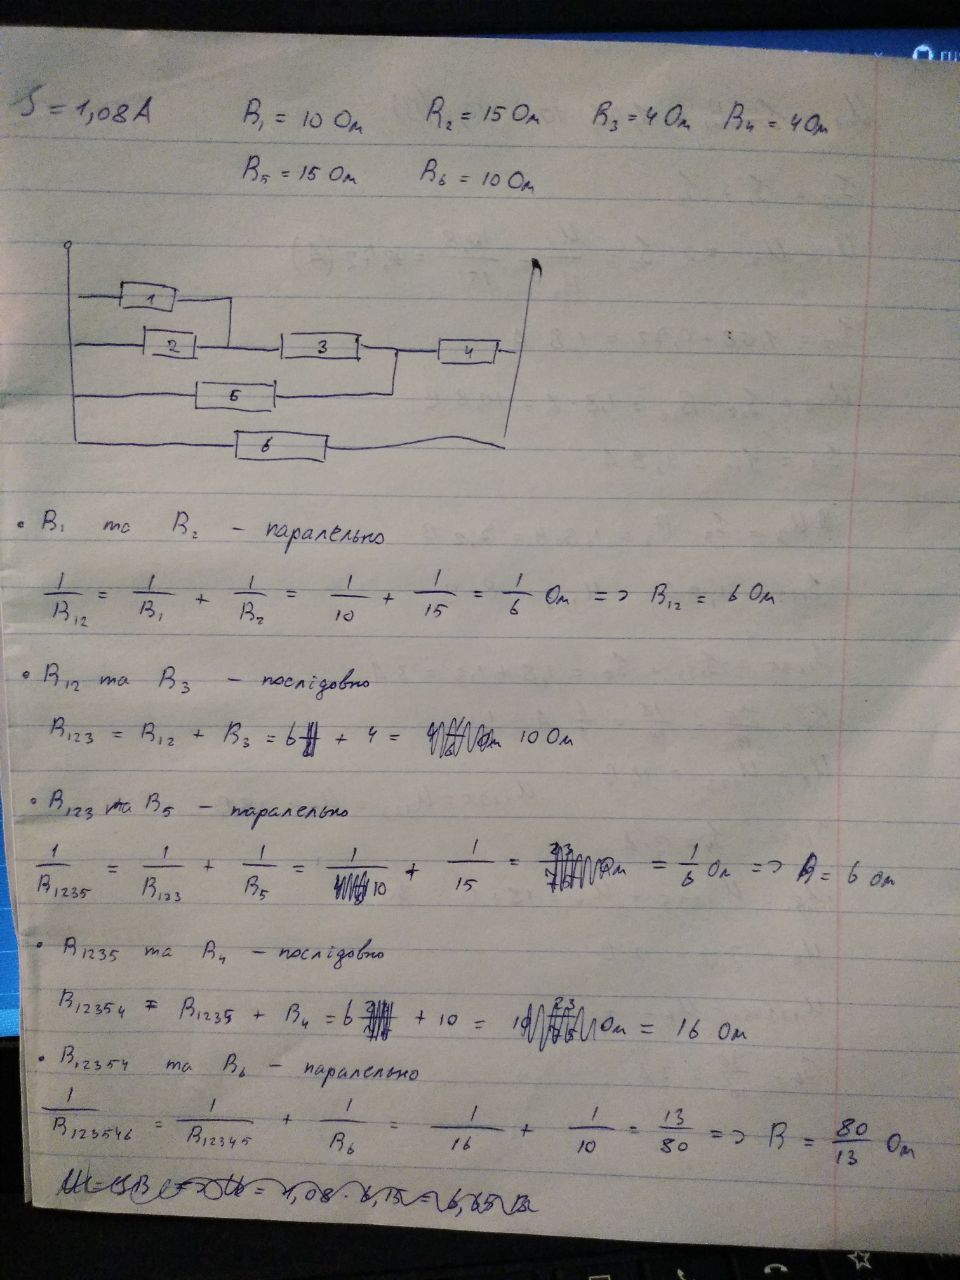 I = 1,08 А R₁ = 10 Ом R₂ = 15 Ом R₃ = 4 Ом R₄ = 4 Ом
R₅ = 15 Ом R₆ = 10 Ом
1
2 3 4
5
6
• R₁ та R₂ – паралельно
1/R₁₂ = 1/R₁ + 1/R₂ = 1/10 + 1/15 = 1/6 Ом => R₁₂ = 6 Ом
• R₁₂ та R₃ – послідовно
R₁₂₃ = R₁₂ + R₃ = 6 + 4 = 10 Ом
• R₁₂₃ та R₅ – паралельно
1/R₁₂₃₅ = 1/R₁₂₃ + 1/R₅ = 1/10 + 1/15 = = 1/6 Ом => R = 6 Ом
• R₁₂₃₅ та R₄ – послідовно
R₁₂₃₅₄ = R₁₂₃₅ + R₄ = 6 + 10 = Ом = 16 Ом
• R₁₂₃₅₄ та R₆ – паралельно
1/R₁₂₃₅₄₆ = 1/R₁₂₃₄₅ + 1/R₆ = 1/16 + 1/10 = 13/80 => R = 80/13 Ом
= 1,08 · 6,15 = 6,65 В